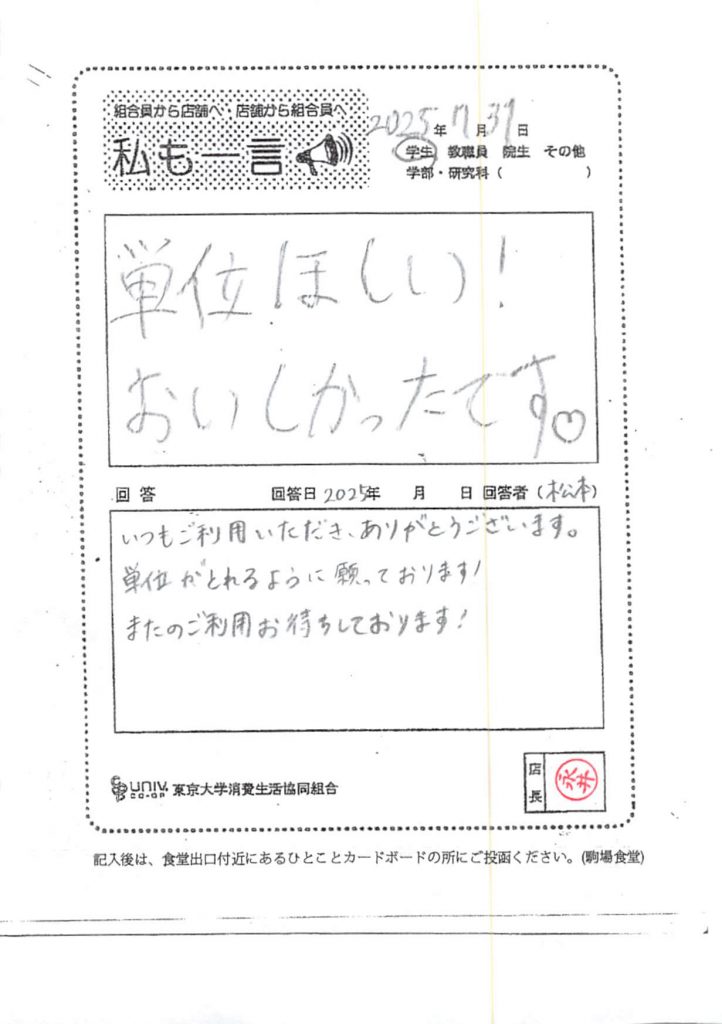 組合員から店舗へ・店舗から組合員へ
私も一言
2025年 7月 31日
学生 教職員 院生 その他
学部・研究科（ ）
単位ほしい！
おいしかったです♡
回答 回答日 2025年 月 日 回答者（松本）
いつもご利用いただき、ありがとうございます。
単位がとれるように願っております！
またのご利用お待ちしております！
UNIV. CO-OP 東京大学消費生活協同組合
店長 永井
記入後は、食堂出口付近にあるひとことカードボードの所にご投函ください。(駒場食堂)